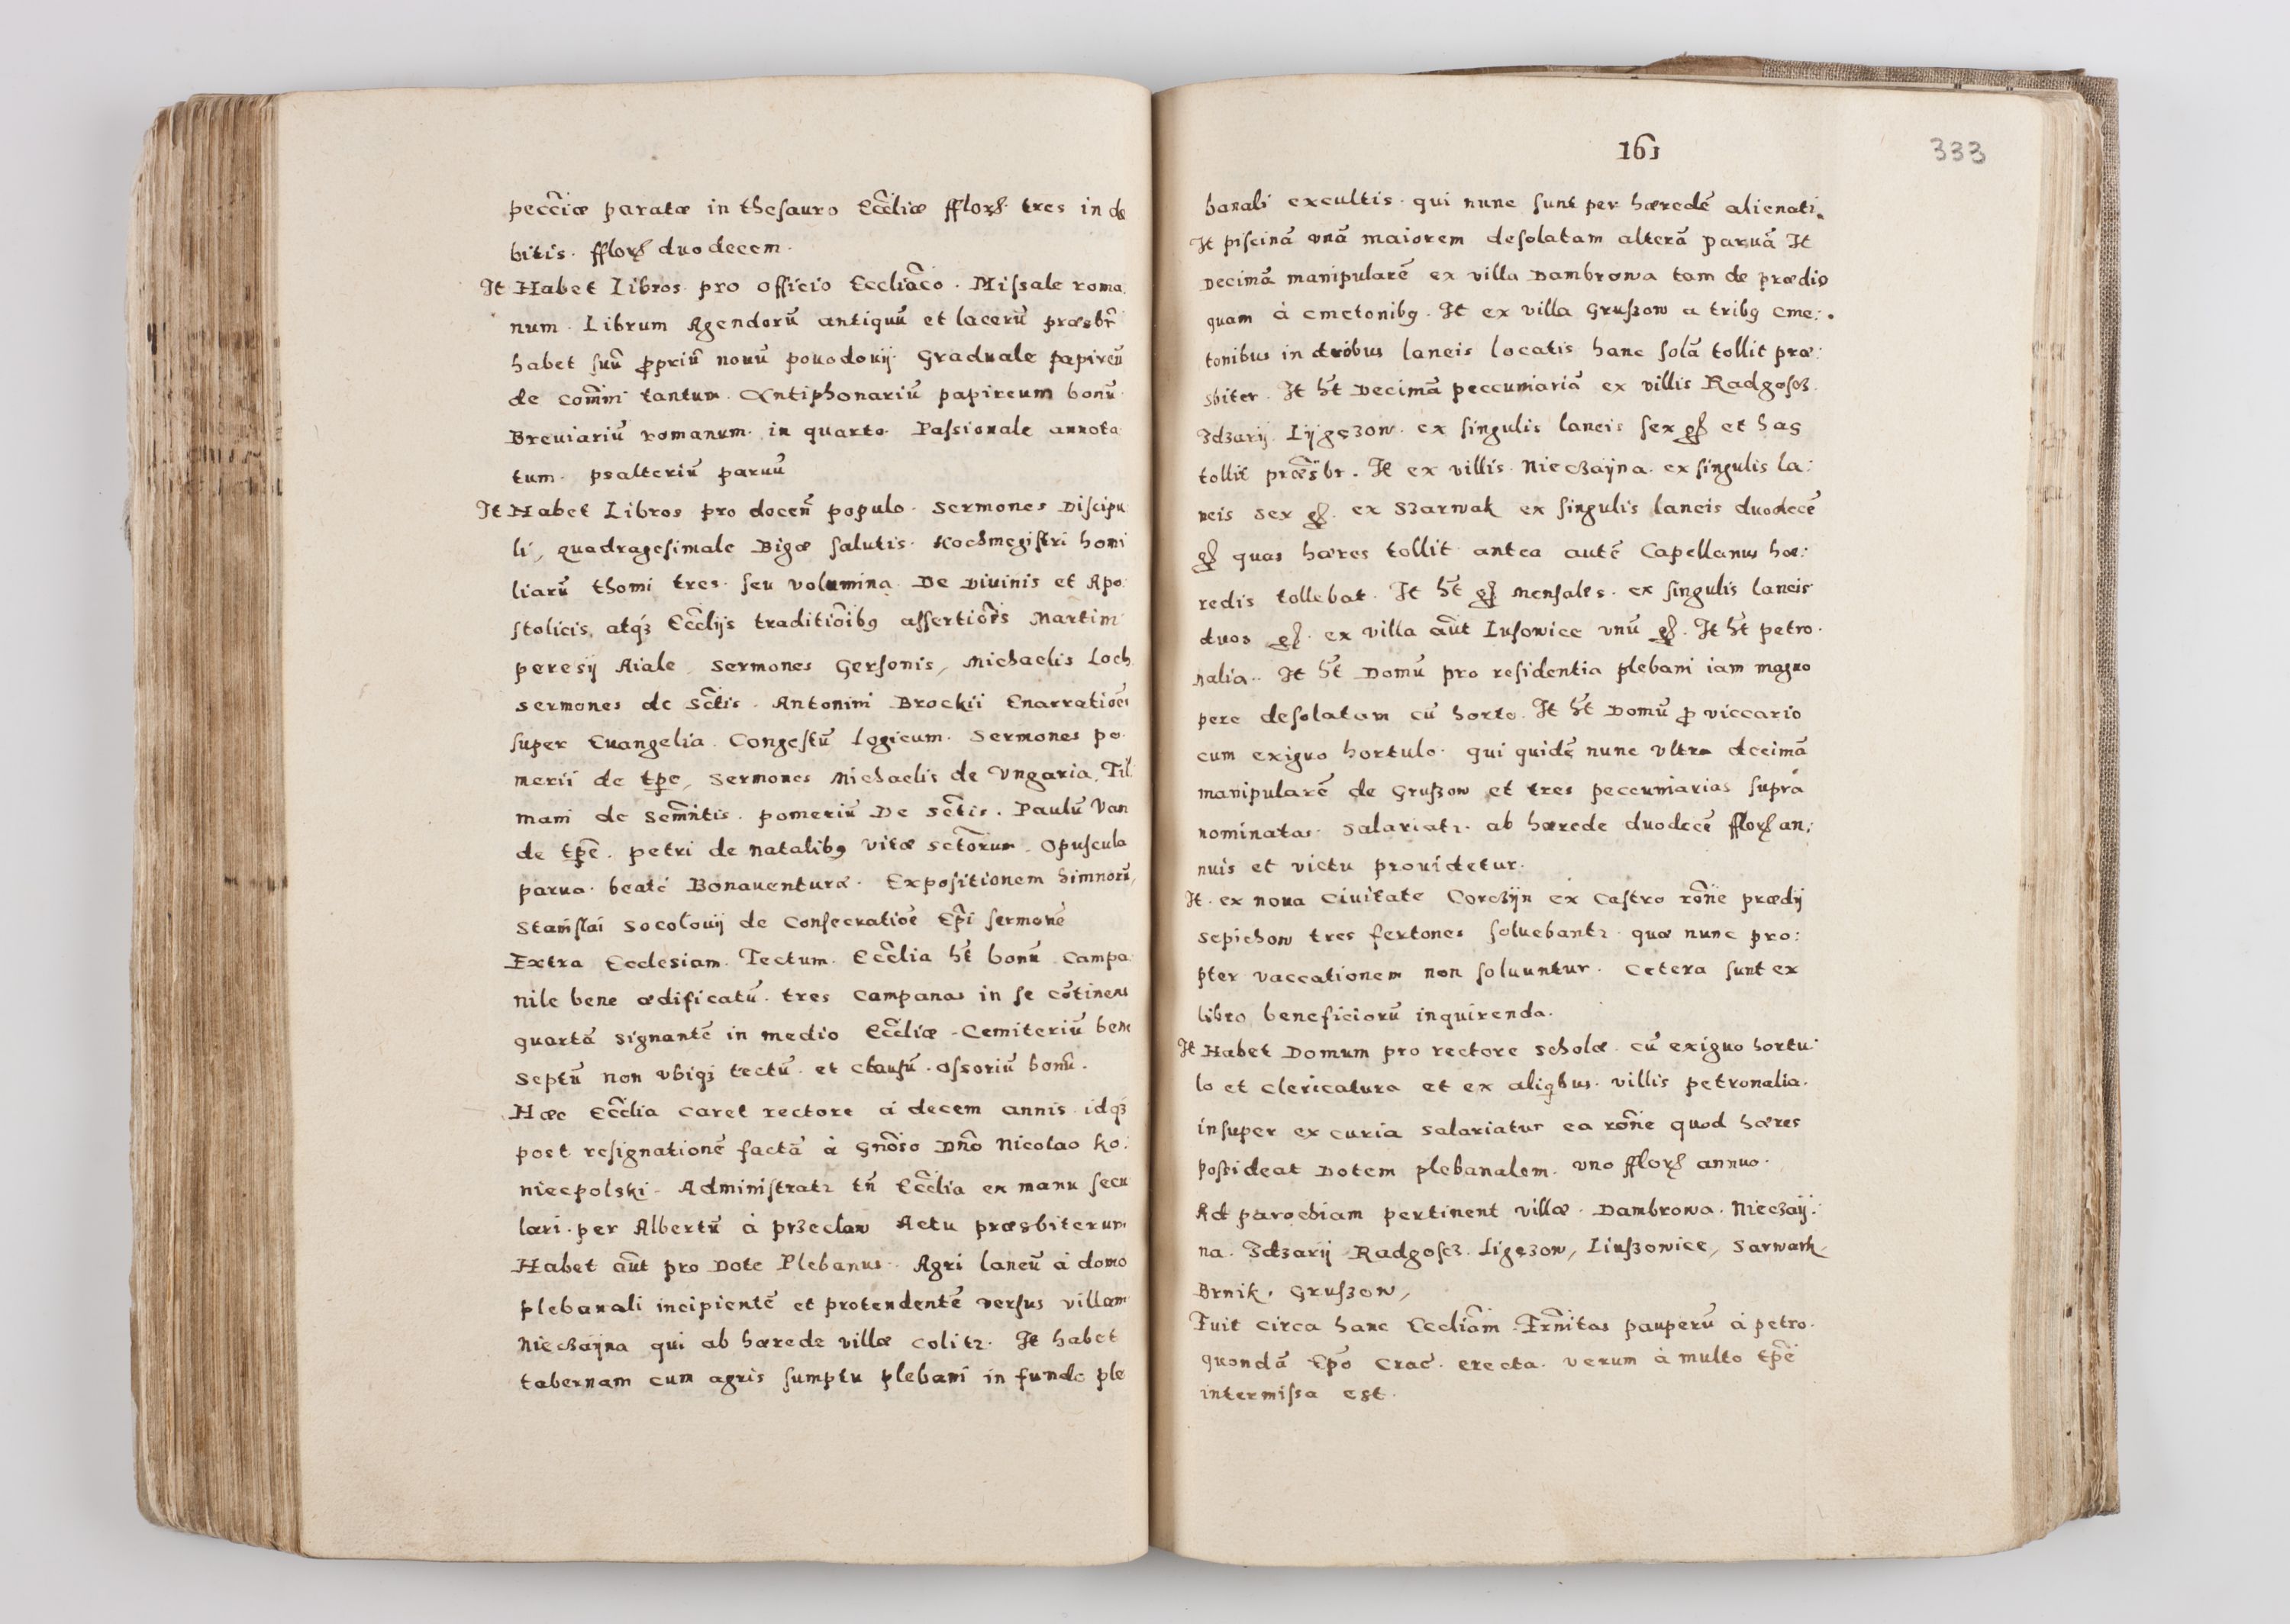 pecc̃iæ paratæ in thesauro Ecc̃liæ fflorꝭ tres in de
bitis. fflorꝭ duodecem.
It Habet Libros pro officio Eccliãco. Missale roma
num. Librum Agendorũ antiquũ et lacerũ præsbr̃
habet suũ ꝓpriũ nouũ pouodouij Graduale papireũ
de com̃ni tantum. Antiphonariũ papireum bonũ
Breuiariũ romanum in quarto Passionale annota
tum. psalteriũ paruũ
It Habet Libros pro doceñ populo. Sermones Discipu
li, quadragesimale Bigæ salutis. Kochmegistri homi
liarũ thomi tres seu volumina De Diuinis et Apo
stolicis, atqꝫ Ecc̃lijs traditiõibꝰ assertiões Martini
peresij Aiale, Sermones Gersonis, Michaelis Loch
sermones de Sc̃tis. Antonini Brockii Enarratiões
super Euangelia. Congestũ Logicum. Sermones po
merii de tp̃e, Sermones Michaelis de Vngaria, Til
mani de Sem̃ntis. pomeriũ De Sc̃tis. Paulũ Van
de tp̃e. petri de natalibꝰ vitæ sctõrum. Opuscula
parua beati Bonauenturæ. Expositionem himnorũ,
Stanislai Socolouij de Consecratiõe Ep̃i sermonẽ
Extra Ecclesiam. Tectum. Ecc̃lia hẽt bonũ Campa
nile bene ædificatũ. tres Campanas in se cõtinens
quartã signantẽ in medio Ecc̃liæ. Cemiteriũ bene
Septũ non vbiqꝫ tectũ. et clausũ. Ossoriũ bonũ.
Hæc Ecc̃lia caret rectore á decem annis idqꝫ
post resignationẽ factã à Gnõso Dnõ Nicolao Ko
niecpolski. Administratꝛ tñ Ecc̃lia ex manu secu
lari. per Albertũ à przeclaw Actu præsbiterum
Habet aũt pro Dote Plebanus. Agri laneũ á domo
plebanali incipientẽ et protendentẽ versus villam
Nieczaÿna qui ab hærede villæ colitꝛ. It habet
tabernam cum agris sumptu plebani in fundo ple
161
333
banali excultis. qui nunc sunt per hæredẽ alienati.
It piscinã vnã maiorem desolatam alterã paruã It
Decimã manipularẽ ex villa Dambrowa tam de prædio
quam à cmetonibꝰ. It ex villa Gruszow a tribꝰ cme:
tonibus in duobus laneis locatis hanc solã tollit præ:
sbiter. It hẽt Decimã peccuniariã ex villis Radgoscz
Zdzarij Lijgęzow. ex singulis laneis sex gꝭ et has
tollit præs̃br. It ex villis Nieczaÿna. ex singulis la:
neis sex gꝭ. ex Szarwak ex singulis laneis duodecẽ
gꝭ quas hæres tollit antea autẽ Capellanus hæ:
redis tollebat. It hẽt gꝭ mensales. ex singulis laneis
duos gꝭ. ex villa aũt Lusowice vnũ gꝭ. It hẽt petro
nalia. It hẽt Domũ pro residentia plebani iam magno
pere desolatam cũ horto. It hẽt Domũ ꝓ viccario
cum exiguo hortulo. qui quidẽ nunc vltra decimã
manipularẽ de Gruszow et tres peccuniarias supra
nominatas. Salariatꝛ. ab hærede duodecẽ fflorꝭ an:
nuis et victu prouidetur.
It. ex noua Ciuitate Corczÿn ex Castro rõne prædij
Sepichow tres fertones soluebantꝛ. quæ nunc pro:
pter vaccationem non soluuntur. Cetera sunt ex
libro beneficiorũ inquirenda.
It Habet Domum pro rectore Scholæ. cũ exiguo hortu
lo et clericatura et ex aliqbus. villis petronalia.
insuper ex curia Salariatur ea rõne quod hæres
possideat Dotem plebanalem. vno fflorꝭ annuo.
Ad parochiam pertinent villæ. Dambrowa. Nieczaÿ:
na. Zdzarij Radgoscz. Ligęzow, Liuszowice, Sarwark,
Brnik, Gruszow,
Fuit circa hanc Eccliãm Frñitas pauperũ à petro.
quondã Ep̃o Crac̃. erecta. verum à multo tp̃e
intermissa est.